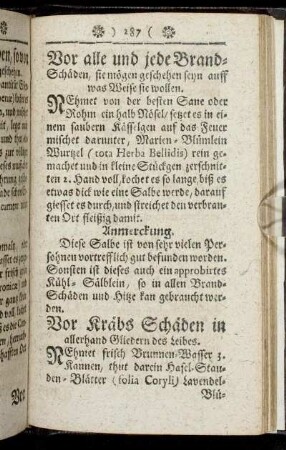 ) 287 (
Vor alle und jede Brand-
Schäden, sie mögen geschehen seyn auff
was Weise sie wollen.
NEhmet von der besten Sane oder
Rohm ein halb Nösel, setzet es in ei-
nem saubern Kässelgen auf das Feuer
mischet darunter, Marien-Blümlein
Wurtzel (tota Herba Bellidis) rein ge-
machet und in kleine Stückgen zerschnit-
ten 2. Hand voll, kochet es so lange, biß es
etwas dick wie eine Salbe werde, darauf
giesset es durch, und streichet den verbran-
ten Ort fleißig damit.
Anmerckung.
Diese Salbe ist von sehr vielen Per-
sohnen vortrefflich gut befunden worden.
Sonsten ist dieses auch ein approbirtes
Kühl-Sälblein, so in allen Brand-
Schäden und Hitze kan gebraucht wer-
den.
Vor Kräbs Schäden in
allerhand Gliedern des Leibes.
NEhmet frisch Brunnen-Wasser 3.
Kannen, thut darein Hasel-Stau-
den-Blätter (folia Coryli) Lavendel-
Blü-